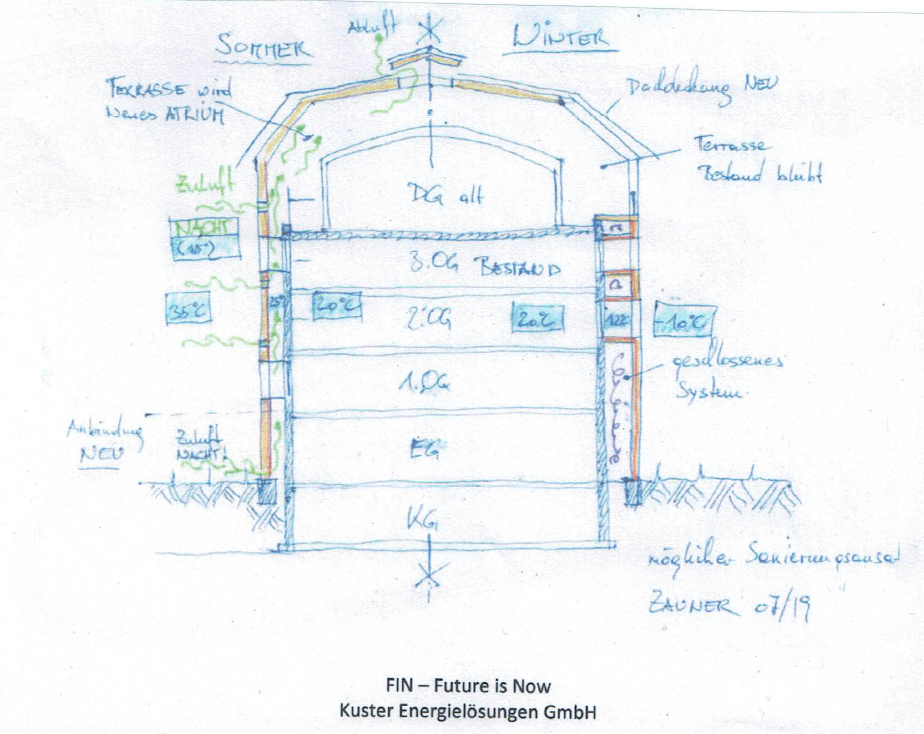 Abluft
SOMMER
WINTER
TERRASSE wird
neues ATRIUM
Dachdeckung NEU
Terrasse
Bestand bleibt
Zuluft
DG alt
NACHT
(18°)
3.OG BESTAND
35°C
25°
20°C
2.OG
20°C
-10°C
geschlossenes
System.
1.OG
Anbindung
NEU
Zuluft
NACHT!
EG
KG
möglicher Sanierungsansat
ZAUNER 07/19
FIN – Future is Now
Kuster Energielösungen GmbH